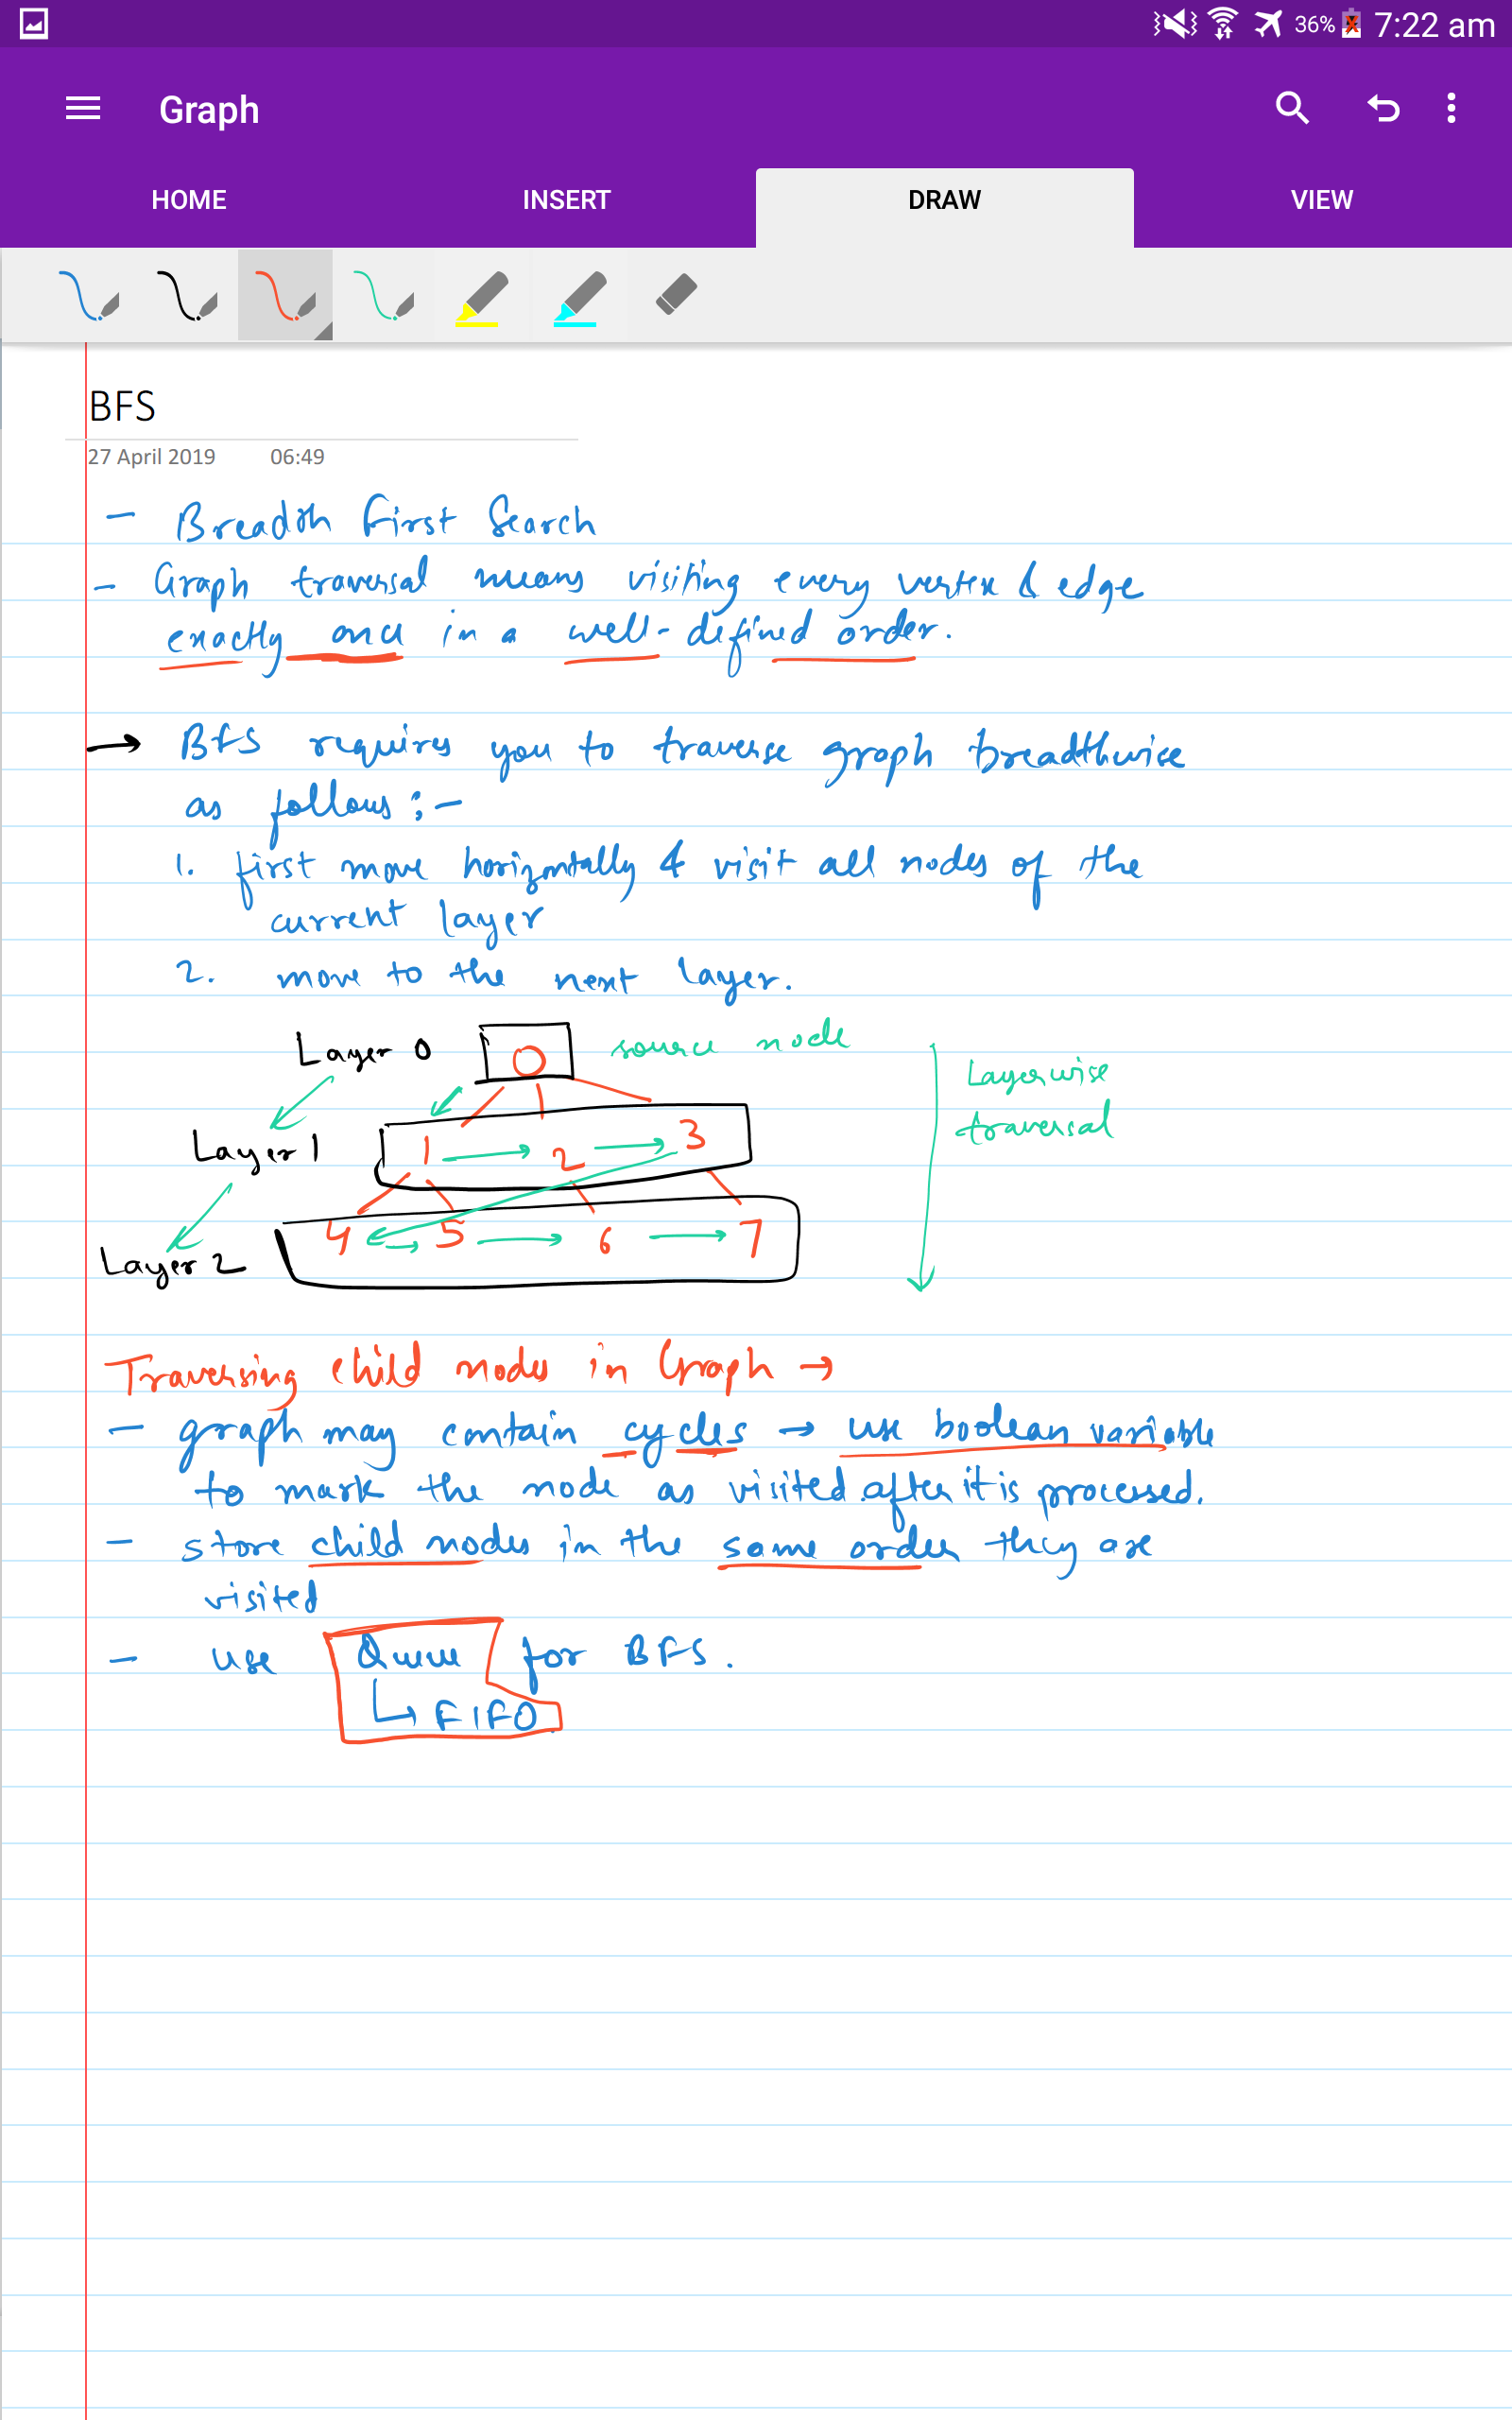 36% 7:22 am
Graph
HOME INSERT DRAW VIEW
BFS
27 April 2019 06:49
- Breadth First Search
- Graph traversal means visiting every vertex & edge
exactly once in a well-defined order.
→ BFS requires you to traverse graph breadthwise
as follows :-
1. first move horizontally & visit all nodes of the
current layer
2. move to the next layer.
Layer 0 0 source node
Layerwise
traversal
Layer 1 1 → 2 → 3
Layer 2 4 → 5 → 6 → 7
Traversing child nodes in Graph →
- graph may contain cycles → use boolean variable
to mark the node as visited after it is processed.
- store child nodes in the same order they are
visited
- use Queue for BFS.
↳ FIFO